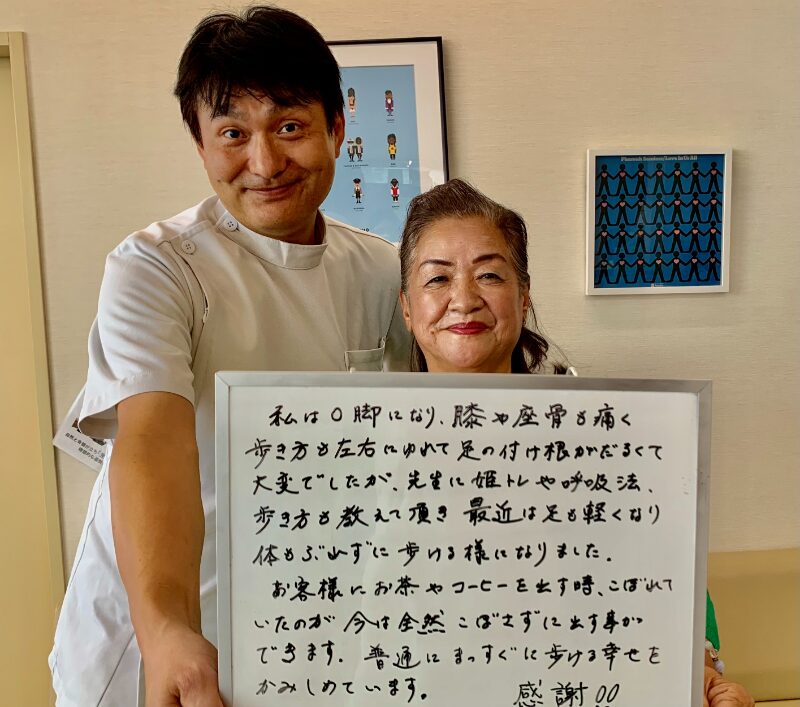 Pharoah Sanders/Love In Us All
私はO脚になり、膝や座骨も痛く
歩き方も左右にゆれて足の付け根がだるくて
大変でしたが、先生に姫トレや呼吸法、
歩き方も教えて頂き 最近は足も軽くなり
体もぶれずに歩ける様になりました.
お客様にお茶やコーヒーを出す時、こぼれて
いたのが 今は全然こぼさずに出す事が
できます. 普通にまっすぐに歩ける幸せを
かみしめています。 感謝!!